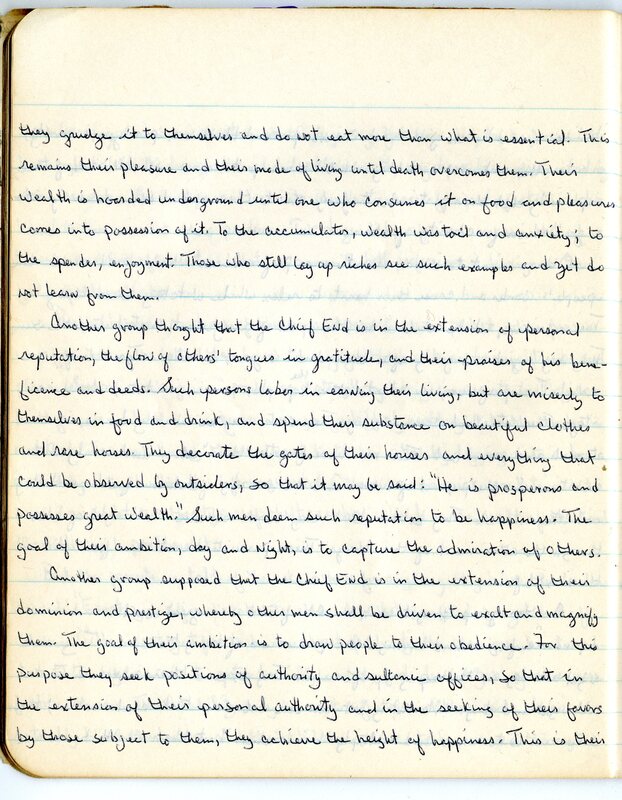 they grudge it to themselves and do not eat more than what is essential. This
remains their pleasure and their mode of living until death overcomes them. Their
wealth is hoarded underground until one who consumes it on food and pleasures
comes into possession of it. To the accumulator, wealth was toil and anxiety; to
the spender, enjoyment. Those who still lay up riches see such examples and yet do
not learn from them.
Another group thought that the Chief End is in the extension of personal
reputation, the flow of others' tongues in gratitude, and their praises of his bene-
ficence and deeds. Such persons labor in earning their living, but are miserly to
themselves in food and drink, and spend their substance on beautiful clothes
and rare horses. They decorate the gates of their houses and everything that
could be observed by outsiders, so that it may be said: "He is prosperous and
possesses great wealth." Such men deem such reputation to be happiness. The
goal of their ambition, day and night, is to capture the admiration of others.
Another group supposed that the Chief End is in the extension of their
dominion and prestige, whereby other men shall be driven to exalt and magnify
them. The goal of their ambition is to draw people to their obedience. For this
purpose they seek positions of authority and sultanic offices, so that in
the extension of their personal authority and in the seeking of their favors
by those subject to them, they achieve the height of happiness. This is their